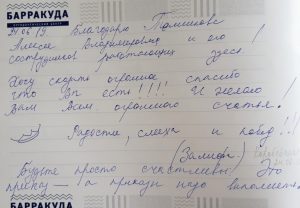 БАРРАКУДА
24.06.19. Благодарю
Алексея Владимировича и его
сотрудников работающих здесь!
Хочу сказать огромное спасибо
что Вы есть!!!! И желаю
Вам всем огромного счастья!
Радости, смеха и побед!!!
Будьте просто счастливы! Это
приказ – а приказы надо выполнять.
БАРРАКУДА